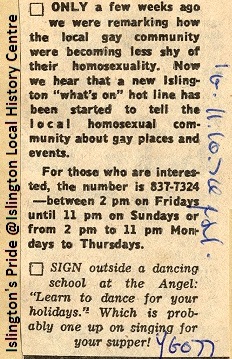 Islington's Pride @Islington Local History Centre
□ ONLY a few weeks ago
we were remarking how
the local gay community
were becoming less shy of
their homosexuality. Now
we hear that a new Isling-
ton "what's on" hot line has
been started to tell the
local homosexual com-
munity about gay places and
events.
For those who are interes-
ted, the number is 837-7324
—between 2 pm on Fridays
until 11 pm on Sundays or
from 2 pm to 11 pm Mon-
days to Thursdays.
□ SIGN outside a dancing
school at the Angel:
"Learn to dance for your
holidays." Which is prob-
ably one up on singing for
your supper!
YG077